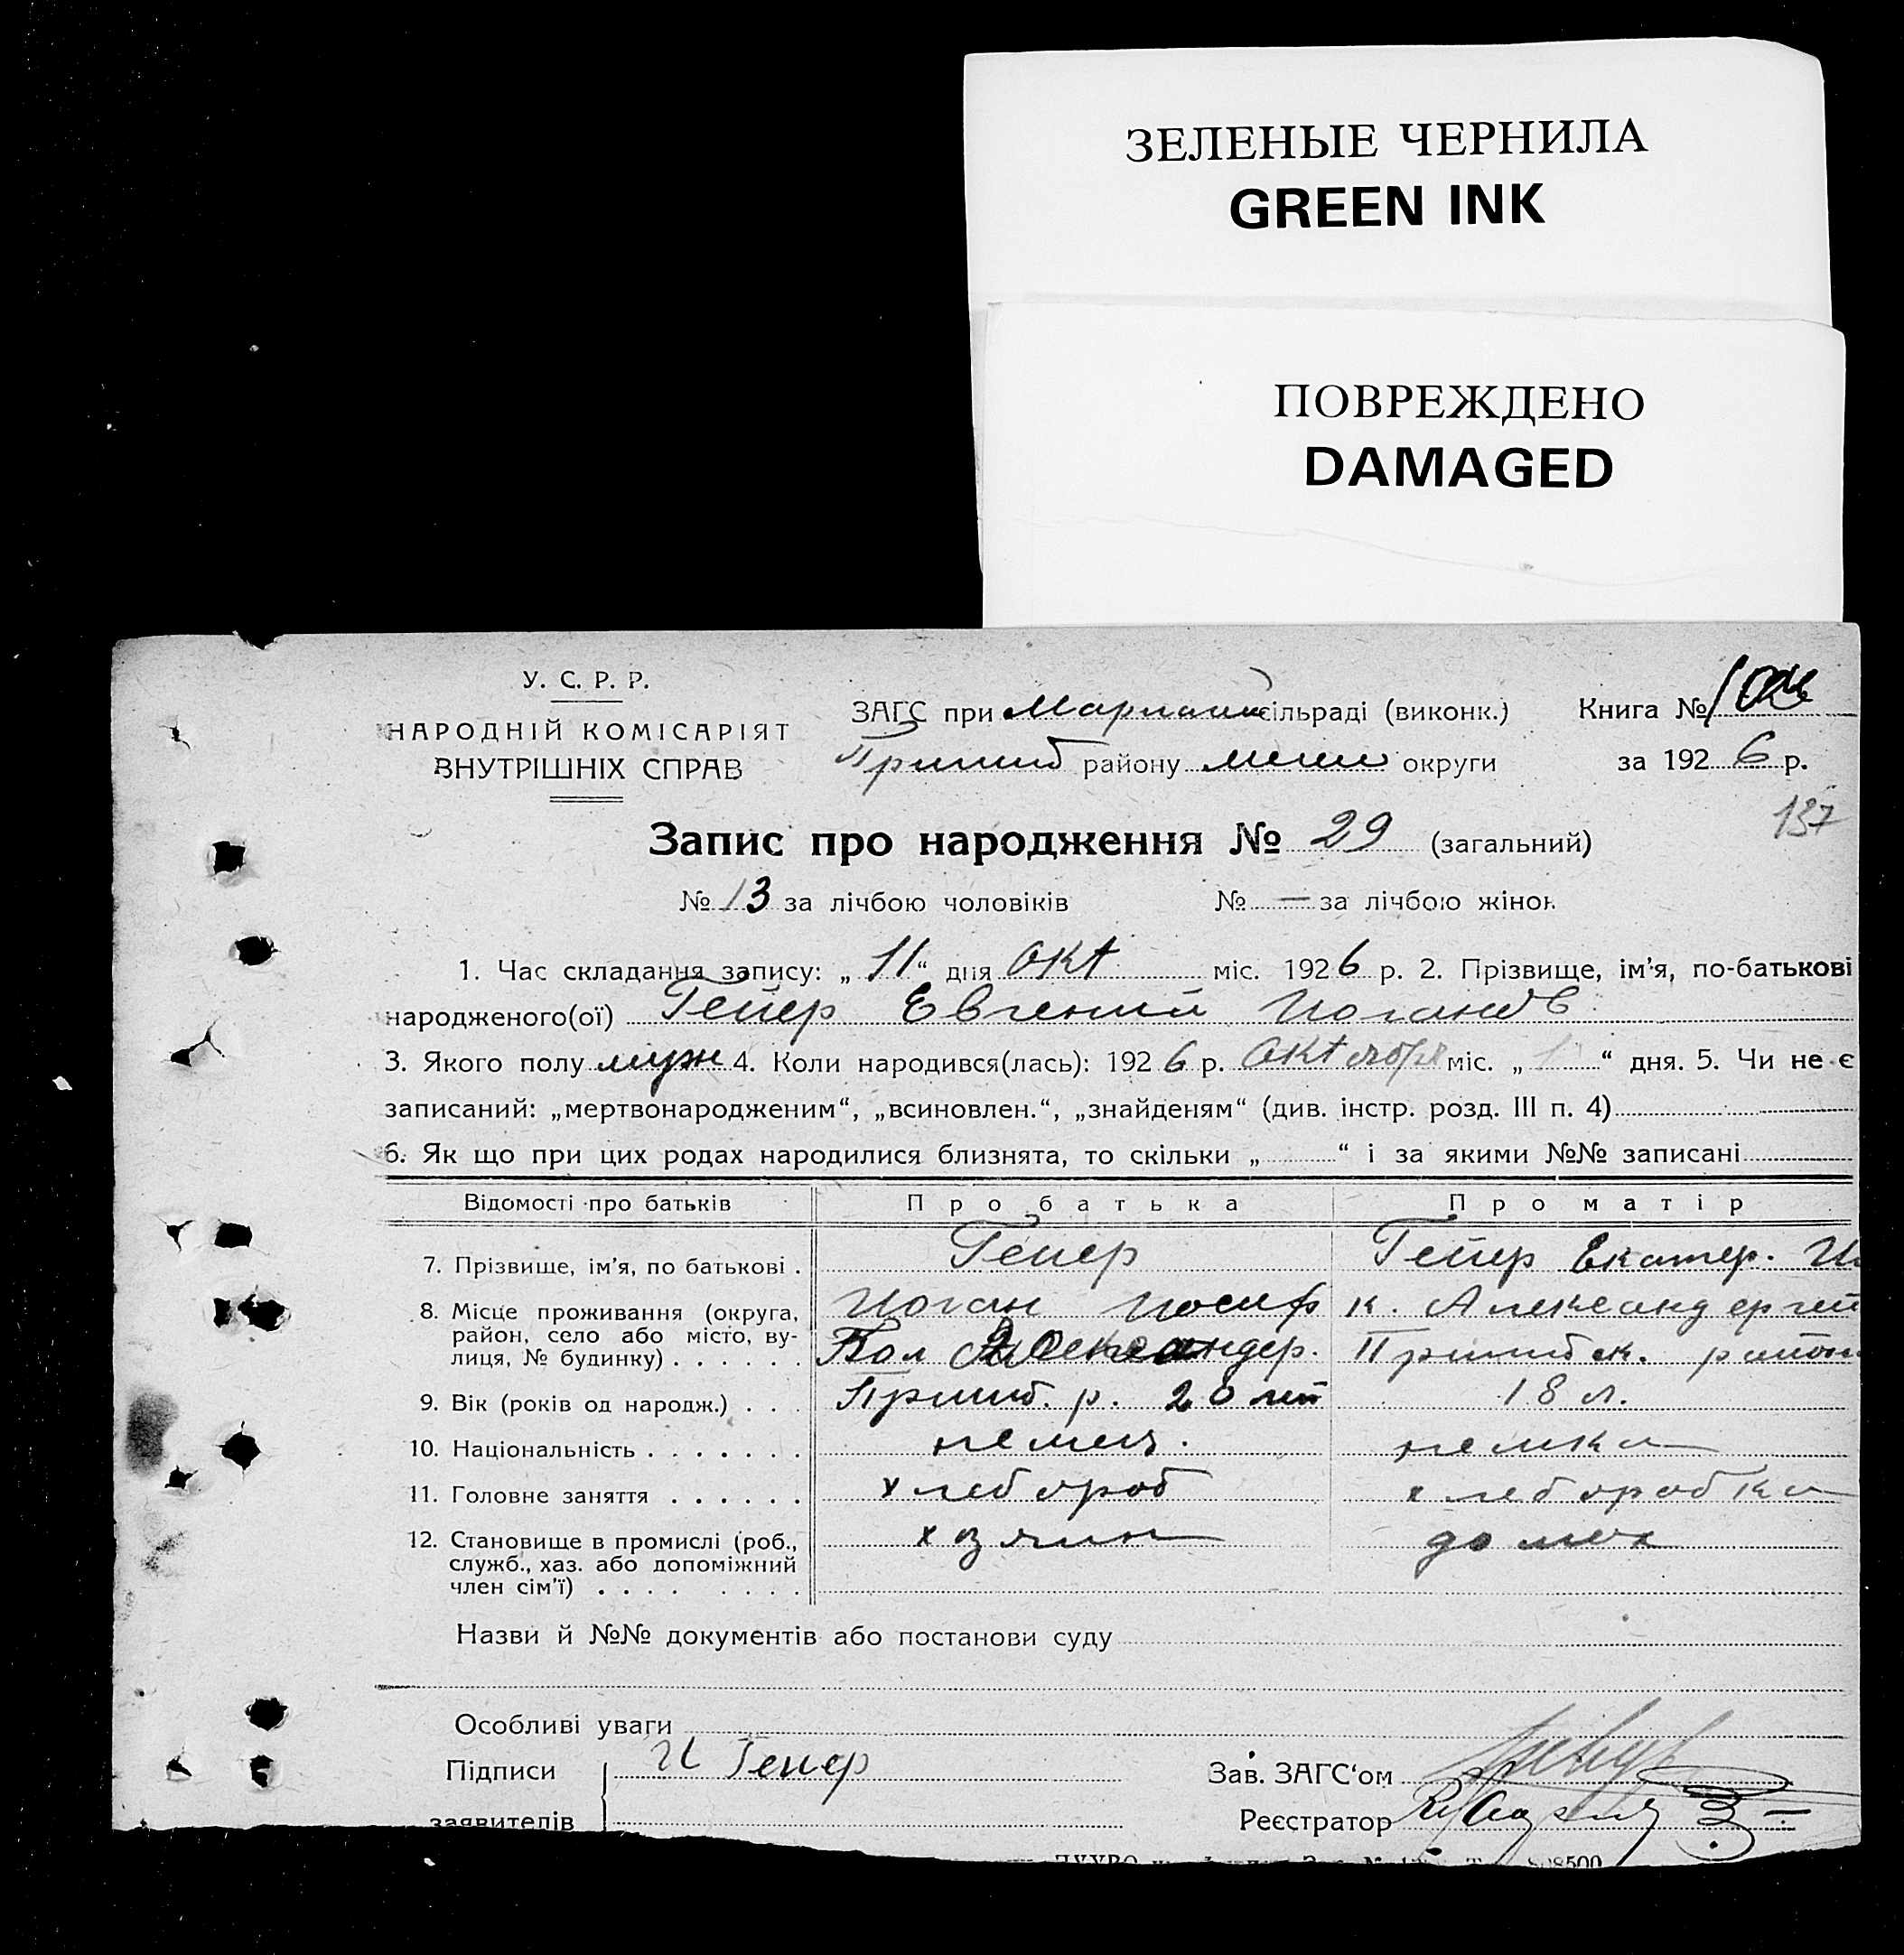 ЗЕЛЕНЫЕ ЧЕРНИЛА
GREEN INK
ПОВРЕЖДЕНО
DAMAGED
У. С. Р. Р.
НАРОДНІЙ КОМІСАРІЯТ
ВНУТРІШНІХ СПРАВ
ЗАГС при сільраді (виконк.)
Пришиб району округи
Книга №
за 1926 р.
137
Запис про народження № 29 (загальний)
№ 13 за лічбою чоловіків № — за лічбою жінок
1. Час складання запису: „11“ дня окт міс. 1926 р. 2. Прізвище, ім'я, по-батькові
народженого(ої) Гейер Евгений Иоганов
3. Якого полу муж 4. Коли народився(лась): 1926 р. октября міс. „1“ дня. 5. Чи не є
записаний: „мертвонародженим“, „всиновлен.“, „знайденям“ (див. інстр. розд. III п. 4)
6. Як що при цих родах народилися близнята, то скільки „ “ і за якими №№ записані
Відомості про батьків Про батька Про матір
7. Прізвище, ім'я, по батькові . Гейер Гейер Екатер.
8. Місце проживання (округа, район, село або місто, вулиця, № будинку) . . . . . . Иоган Иосиф к.
Кол Александер. Пришибск. район
9. Вік (років од народж.) . . . Пришиб. р. 20 лет 18 л.
10. Національність . . . . . . . немец. немка
11. Головне заняття . . . . . . хлебороб хлеборобка
12. Становище в промислі (роб., служб., хаз. або допоміжний член сім'ї) . . . . . . . . хозяин домох
Назви й №№ документів або постанови суду
Особливі уваги
Підписи И Гейер Зав. ЗАГС'ом
заявителів Реєстратор